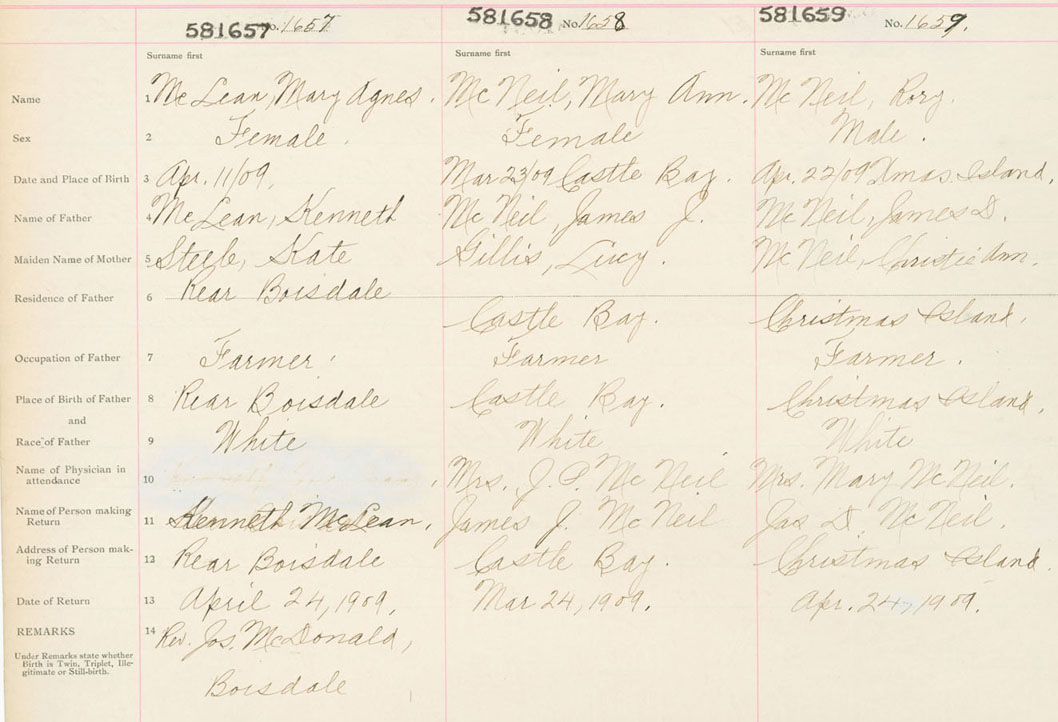 581657 No. 1657 581658 No. 1658 581659 No. 1659.
Surname first Surname first Surname first
Name 1 McLean, Mary Agnes. McNeil, Mary Ann. McNeil, Rory.
Sex 2 Female. Female Male.
Date and Place of Birth 3 Apr. 11/09. Mar 23/09 Castle Bay. Apr. 22/09 Xmas Island.
Name of Father 4 McLean, Kenneth McNeil, James J. McNeil, James D.
Maiden Name of Mother 5 Steele, Kate Gillis, Livey. McNeil, Christie Ann.
Residence of Father 6 Rear Boisdale
Castle Bay. Christmas Island.
Occupation of Father 7 Farmer. Farmer Farmer.
Place of Birth of Father 8 Rear Boisdale Castle Bay. Christmas Island.
and
Race of Father 9 White White White
Name of Physician in
attendance 10 Mrs. J. P. McNeil Mrs. Mary McNeil.
Name of Person making
Return 11 Kenneth McLean. James J. McNeil Jas D. McNeil.
Address of Person mak-
ing Return 12 Rear Boisdale Castle Bay. Christmas Island.
Date of Return 13 April 24, 1909. Mar 24, 1909. Apr. 24, 1909.
REMARKS 14 Rev. Jos. McDonald,
Under Remarks state whether
Birth is Twin, Triplet, Ille-
gitimate or Still-birth.
Boisdale